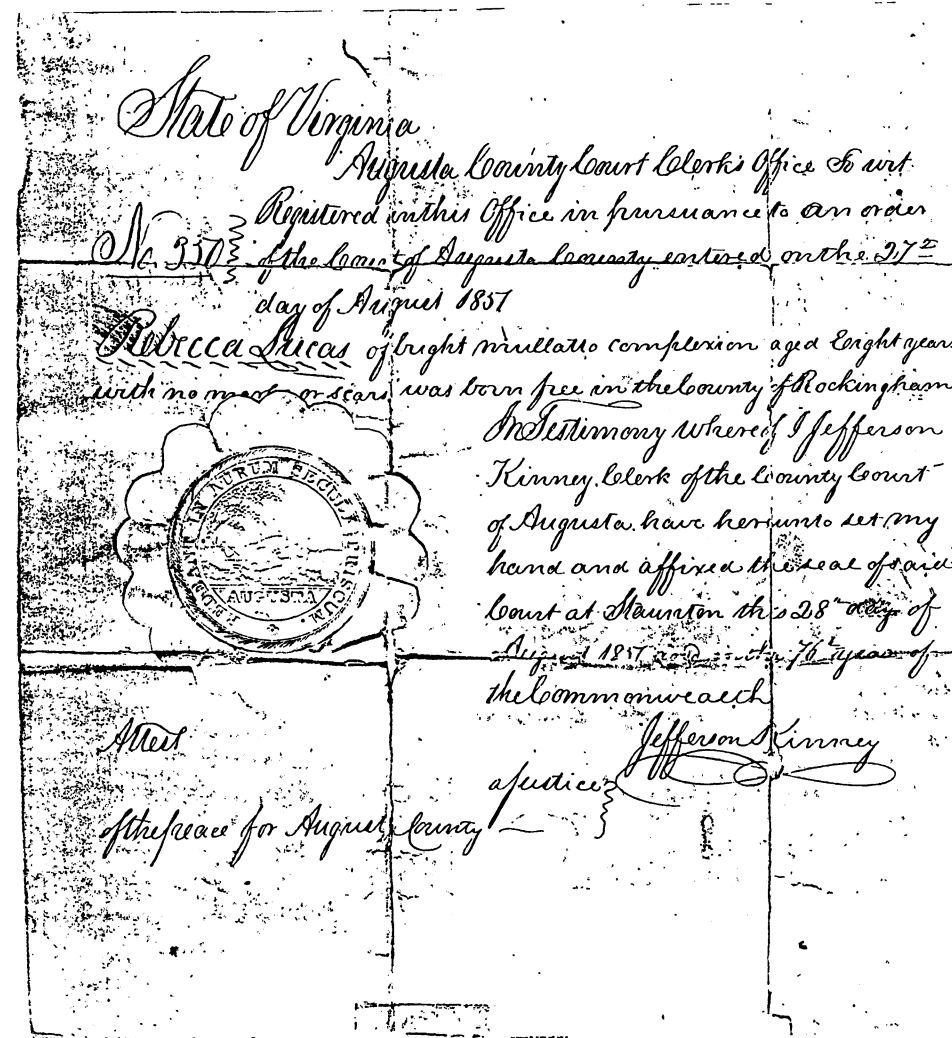 State of Virginia
Augusta County Court Clerk's Office To wit
Registered in this Office in pursuance to an order
No. 350 of the Court of Augusta County entered on the 27th
day of August 1851
Rebecca Lucas of bright mullatto complexion aged Eight years
with no or scars was born free in the County of Rockingham
In Testimony Whereof I Jefferson
Kinney Clerk of the County Court
of Augusta have hereunto set my
hand and affixed the seal of said
Court at Staunton this 28th day of
August 1851 and in the 76th year of
the Commonwealth
REDEANT IN AURUM PRISCUM.
AUGUSTA
Jefferson Kinney
Attest
a justice
of the peace for Augusta County